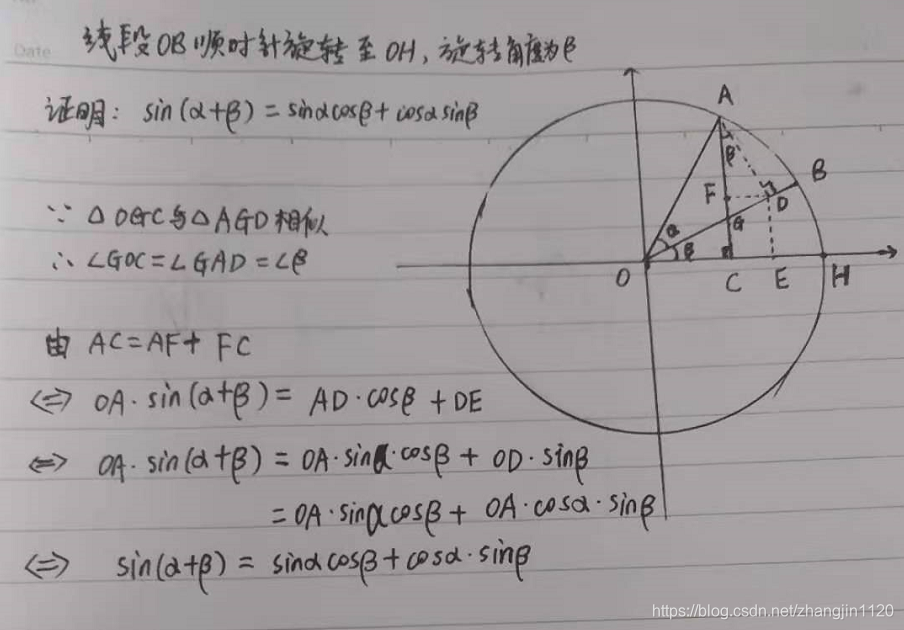 Date
线段OB顺时针旋转至OH,旋转角度为β
证明: sin(α+β)=sinαcosβ+cosαsinβ
A
B
β
F
D
G
α
β
O
C
E
H
∵ △OGC与△AGD相似
∴ ∠GOC=∠GAD=∠β
由 AC=AF+FC
<=> OA·sin(α+β)= AD·cosβ+DE
<=> OA·sin(α+β)= OA·sinα·cosβ+ OD·sinβ
=OA·sinαcosβ+ OA·cosα·sinβ
<=> sin(α+β)= sinαcosβ+cosα·sinβ
https://blog.csdn.net/zhangjin1120